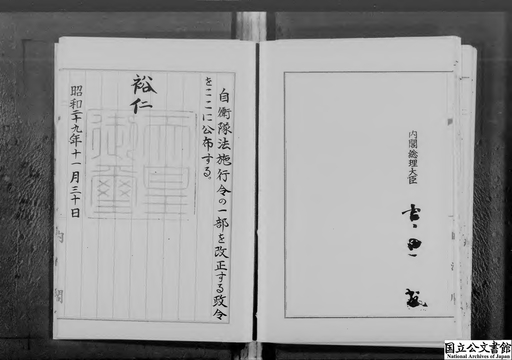 内閣総理大臣
吉田茂
自衛隊法施行令の一部を改正する政令
をここに公布する。
裕仁
天皇御璽
昭和二十九年十一月三十日
内閣
国立公文書館
National Archives of Japan